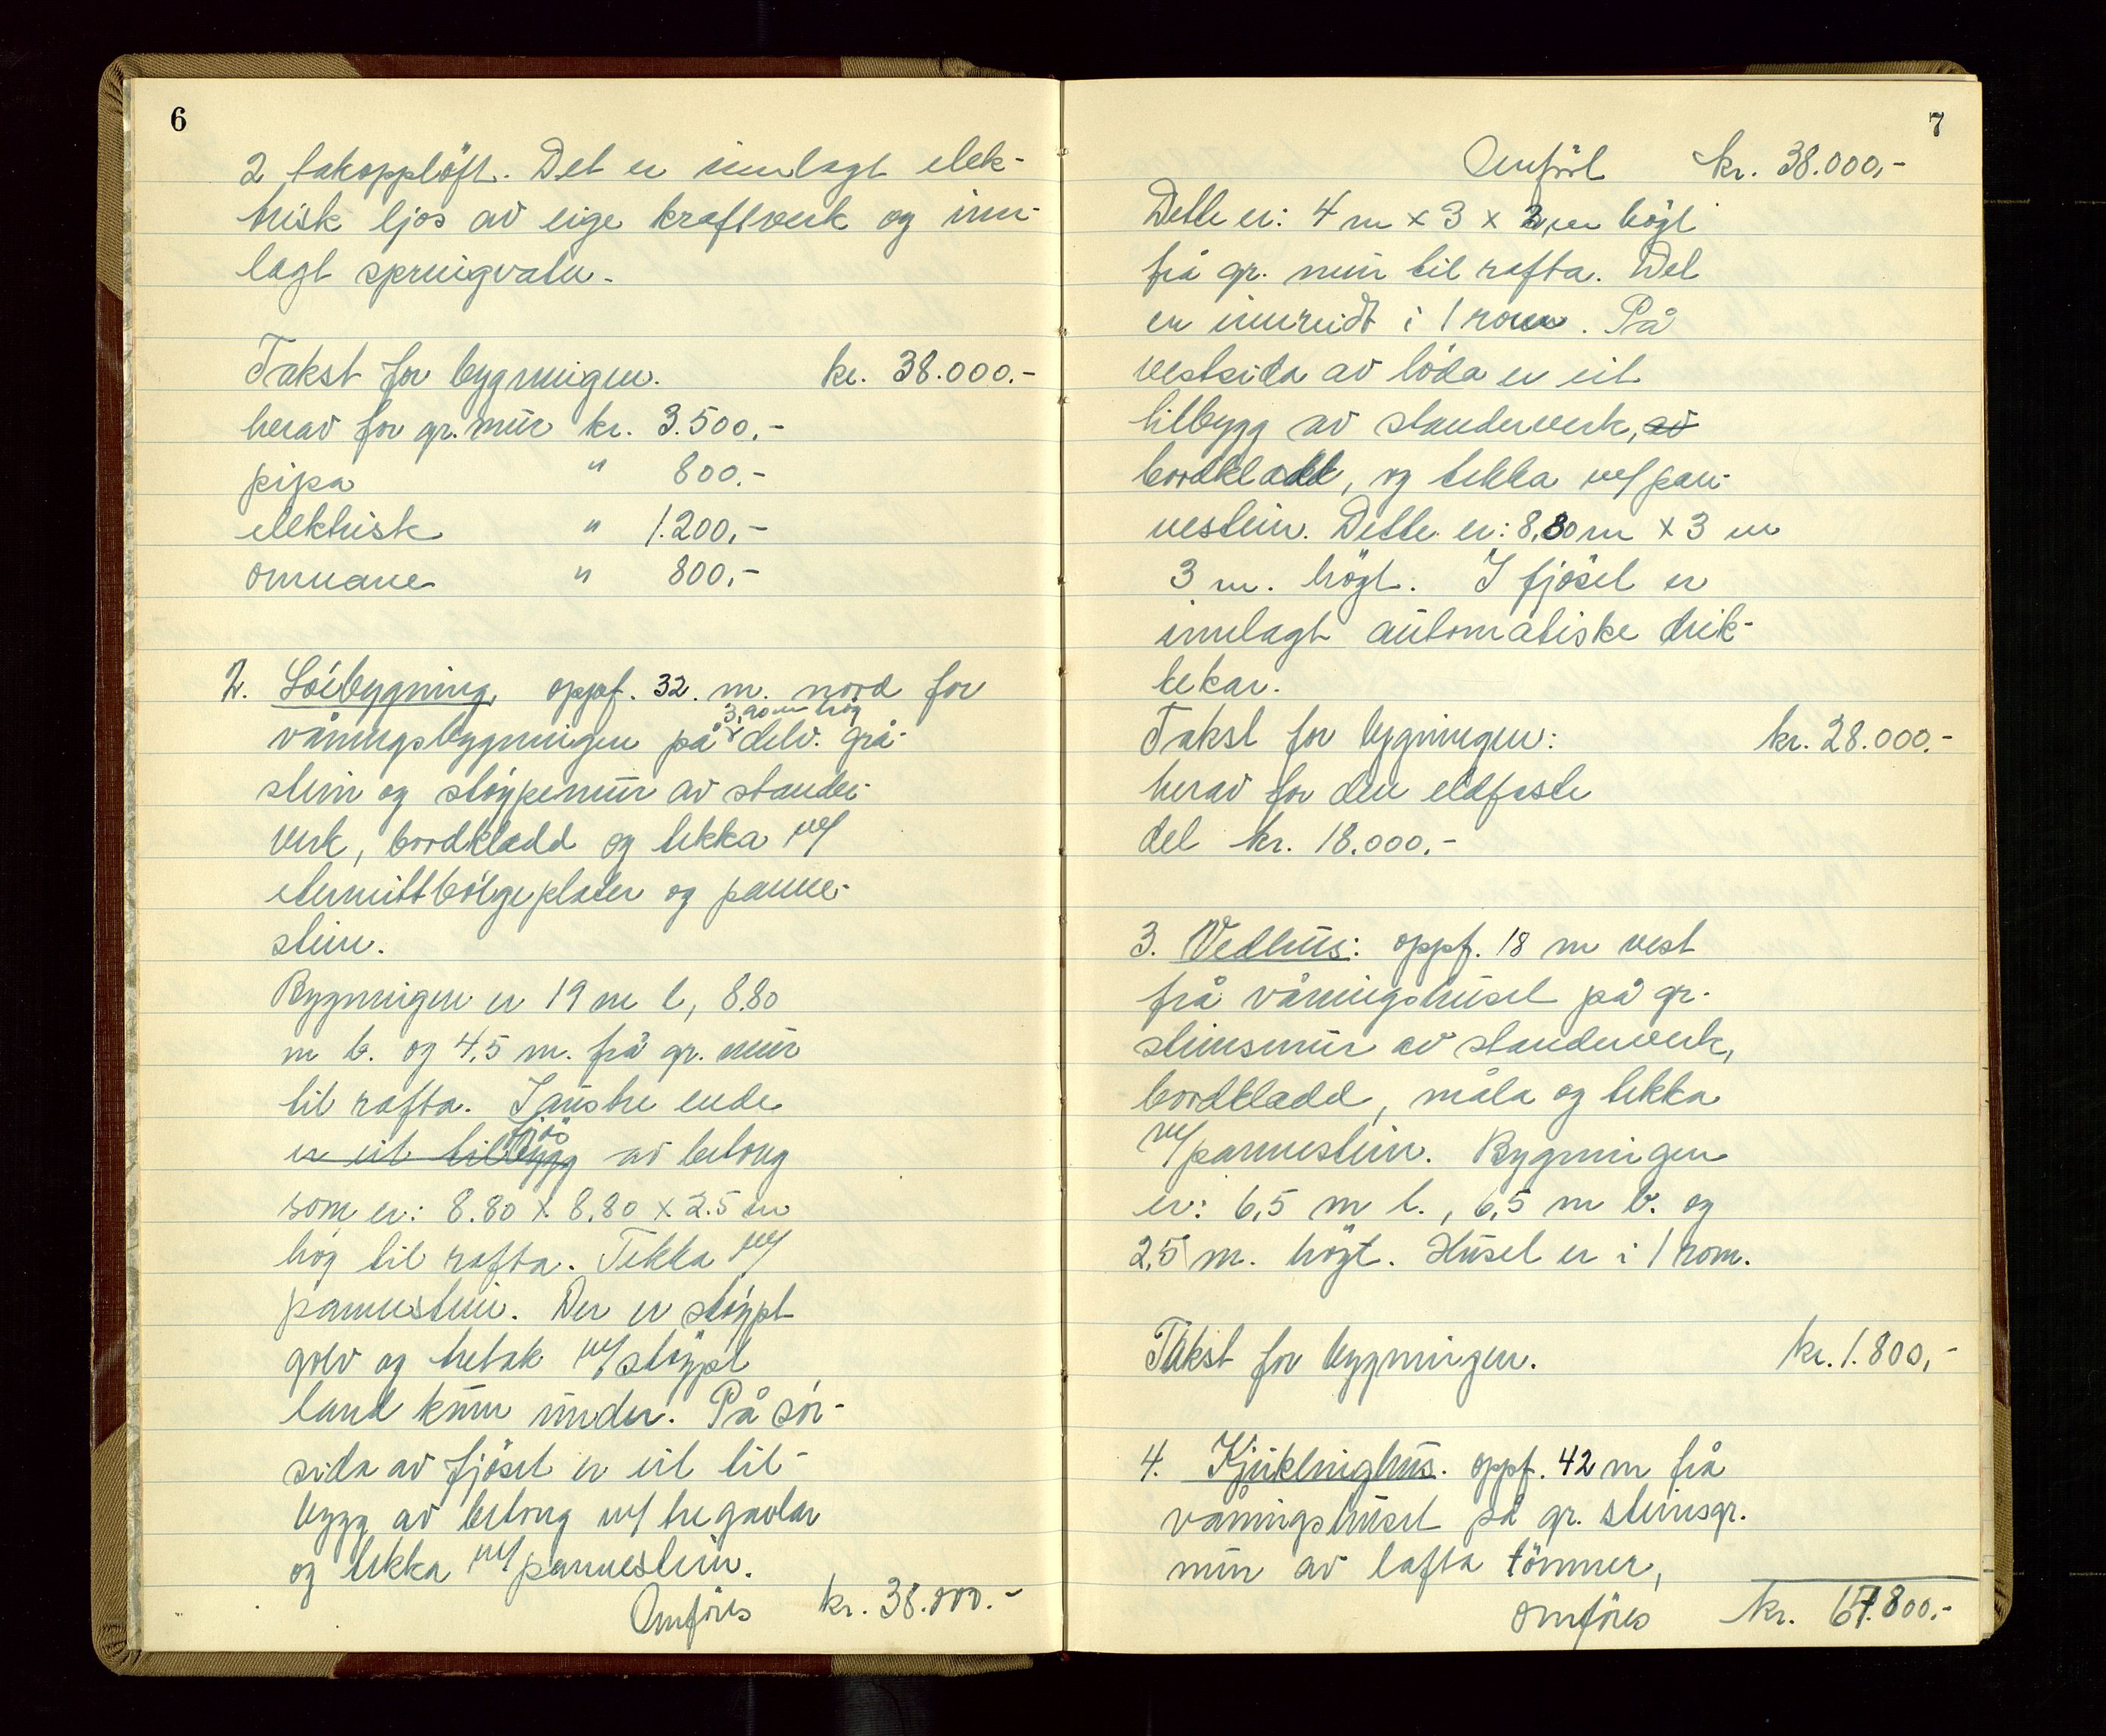 6
2 takopplöft. Det er innlagt elek-
trisk ljos av eige kraftverk og inn-
lagt springvatn.
Takst for bygningen. kr. 38.000.-
herav for gr.mur kr. 3.500,-
pipa " 800.-
elektrisk " 1.200,-
omnane " 800,-
2. Löebygning oppf. 32. m. nord for
3,90 m høg
våningsbygningen på delv. grå-
stein og støypemur av stander-
verk, bordkledd og tekka m/
eternittbölgeplater og panne-
stein.
Bygningen er 19 m l, 8.80
m b. og 4,5 m. frå gr. mur
til rafta. I austre ende
fjös
er eit tilbygg av betong
som er: 8.80 x 8,80 x 2.5 m
høg til rafta. Tekka m/
pannestein. Der er støypt
golv og tretak m/ støypt
land kum under. På sör-
sida av fjöset er eit til-
bygg av betong m/ tre gavlar
og tekka m/ pannestein.
Omföres kr. 38.000.-
7
Omfört kr. 38.000,-
Dette er: 4 m x 3 x 2 m högt
frå gr. mur til rafta. Det
er innreidt i 1 rom. På
vestsida av löda er eit
tilbygg av standerverk, av
bordkledd, og tekka m/ pan-
nestein. Dette er: 8,80 m x 3 m
3 m. högt. I fjöset er
innlagt automatiske drik-
kekar.
Takst for bygningen: kr. 28.000.-
herav for den eldfaste
del kr. 18.000.-
3. Vedhus: oppf. 18 m vest
frå våningshuset på gr.
steinsmur av standerverk,
bordkledd, måla og tekka
m/ pannestein. Bygningen
er: 6,5 m l., 6,5 m b. og
2,5 m. högt. Huset er i 1 rom.
Takst for bygningen. kr. 1.800,-
4. Kjuklinghus. oppf. 42 m frå
våningshuset på gr. steinsgr.
mur av lafta tömmer,
omföres kr. 67.800.-